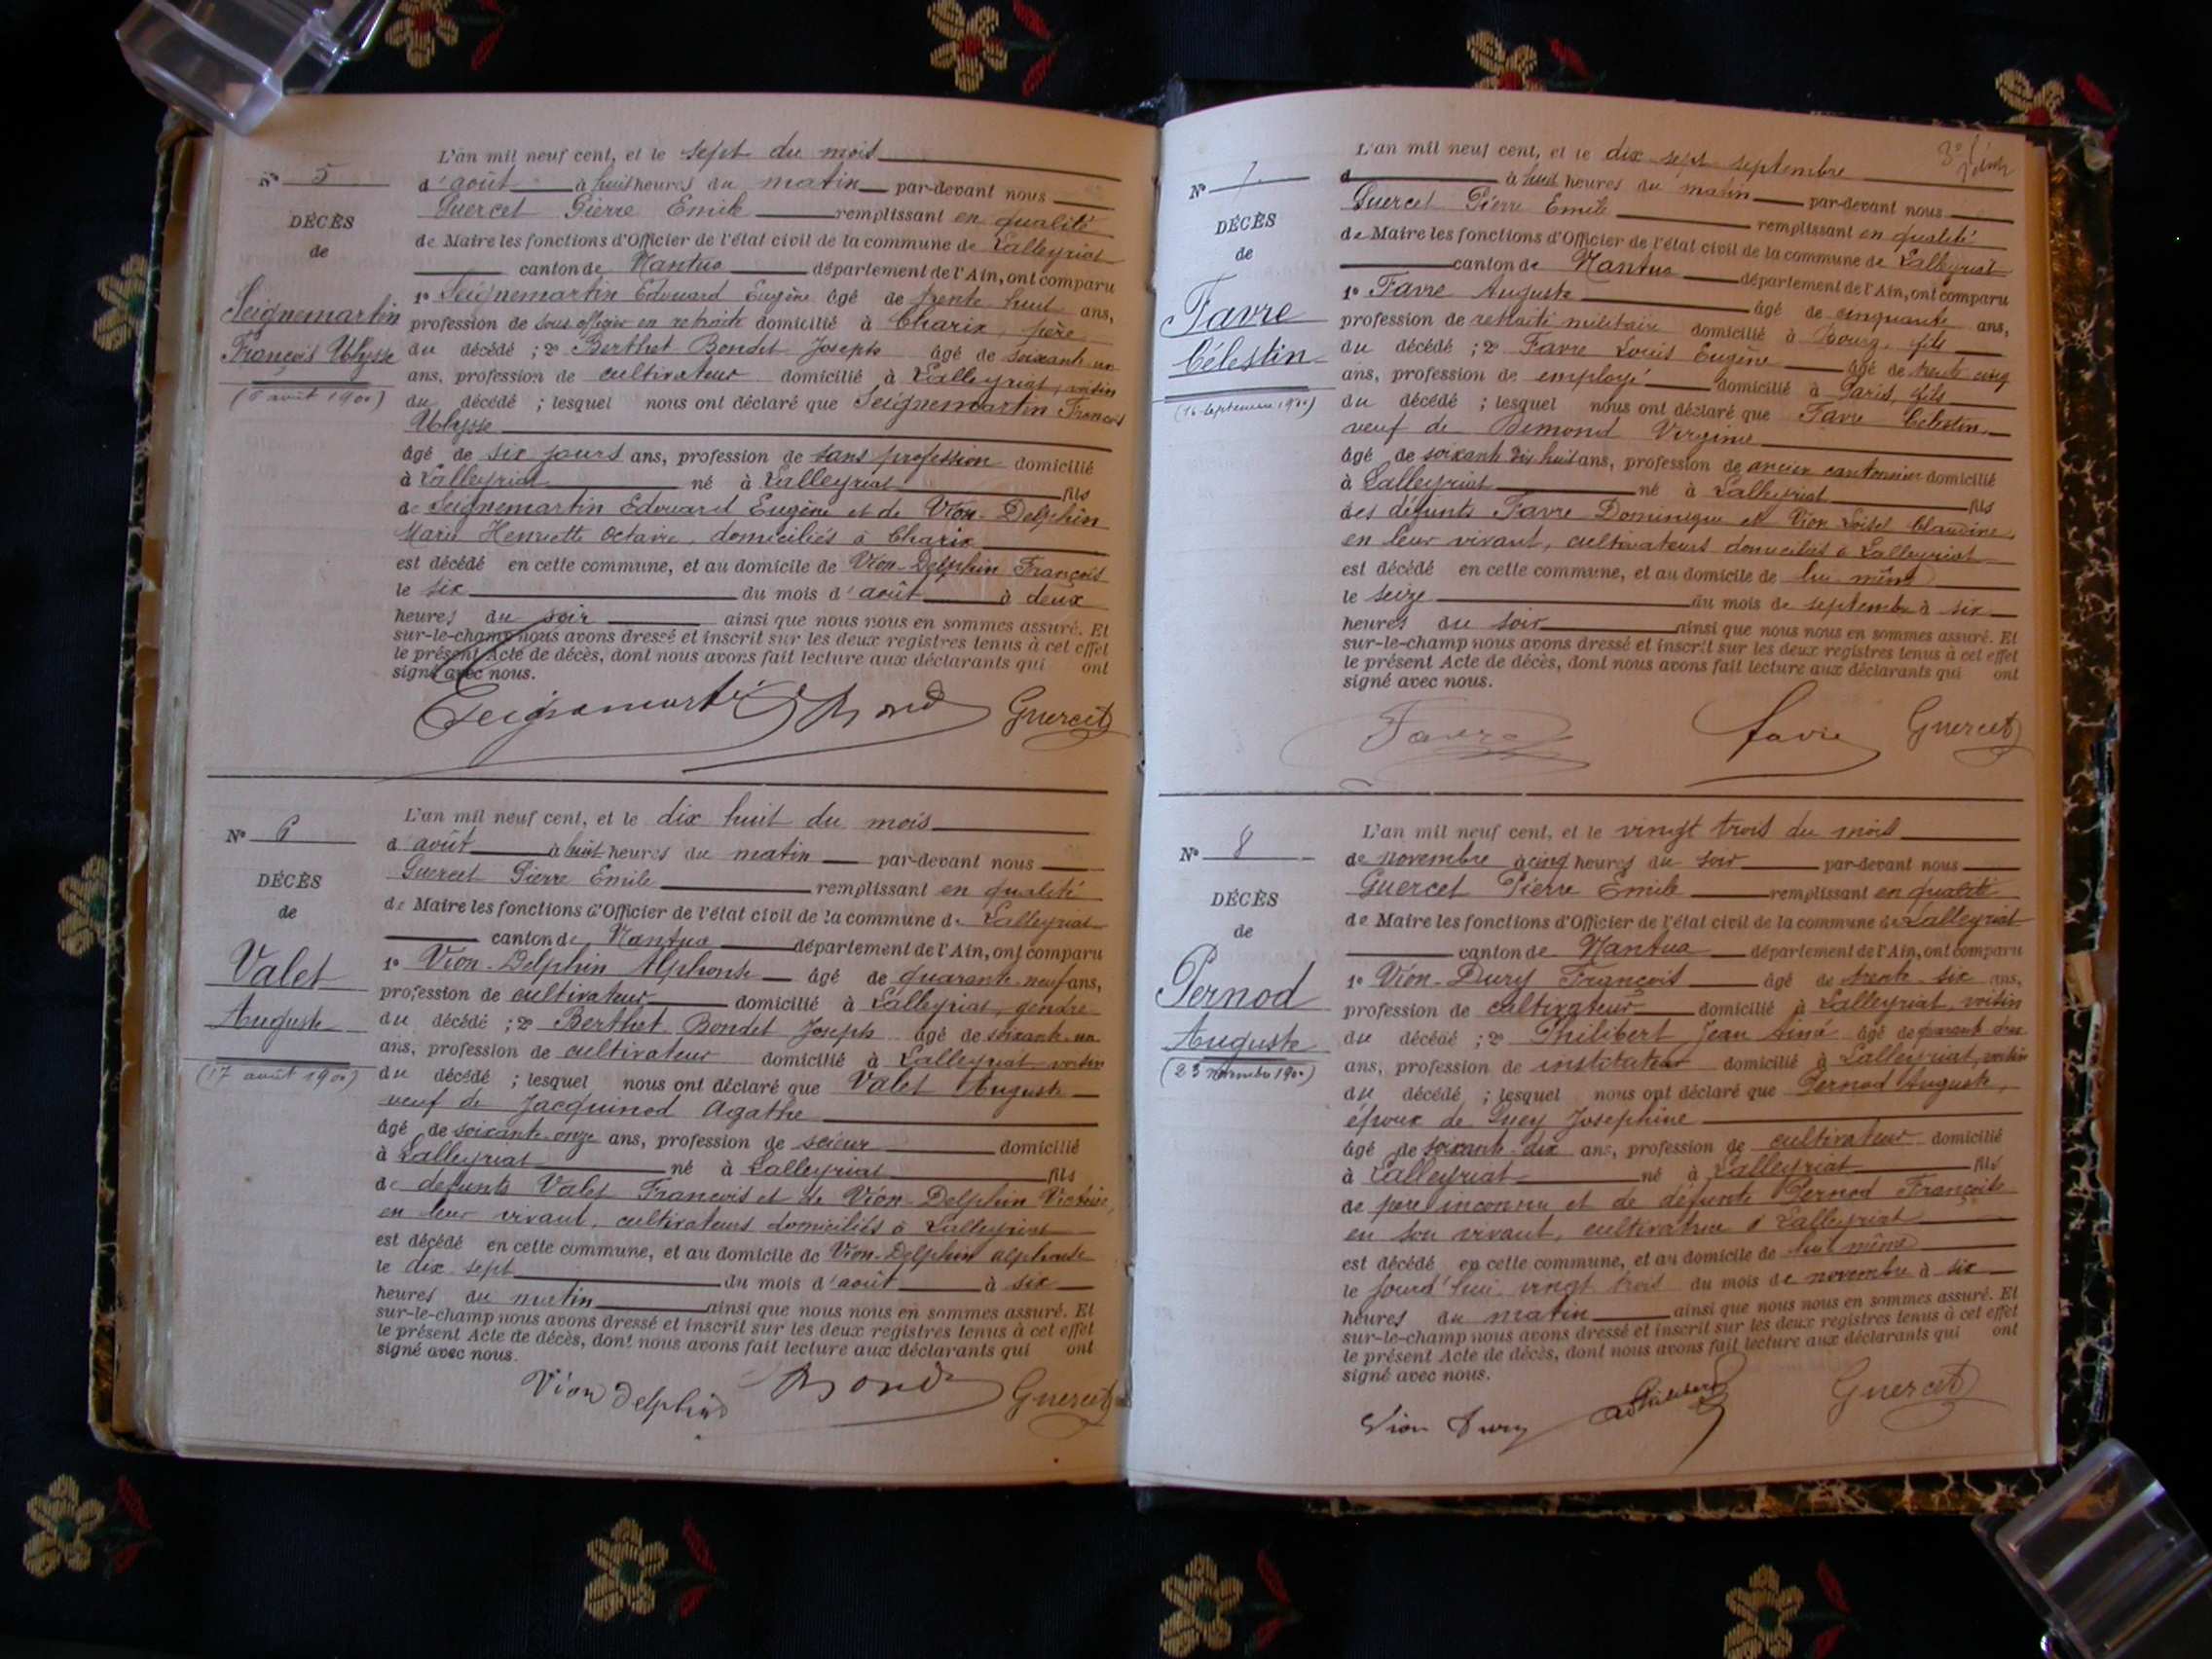 N° 5
DÉCÈS
de
Seignemartin
François Ulysse
(6 août 1900)
L'an mil neuf cent, et le sept du mois
d'août à huit heures du matin par-devant nous
Guercet Pierre Emile remplissant en qualité
de Maire les fonctions d'Officier de l'état civil de la commune de Lalleyriat
canton de Nantua département de l'Ain, ont comparu
1° Seignemartin Edouard Eugène âgé de trente huit ans,
profession de sous officier en retraite domicilié à Charix, père
du décédé ; 2° Berthet-Bondet Joseph âgé de soixante un
ans, profession de cultivateur domicilié à Lalleyriat, voisin
du décédé ; lesquel nous ont déclaré que Seignemartin François
Ulysse
âgé de six jours ans, profession de sans profession domicilié
à Lalleyriat né à Lalleyriat fils
de Seignemartin Edouard Eugène et de Vion-Delphin
Marie Henriette Octavie, domiciliés à Charix
est décédé en cette commune, et au domicile de Vion-Delphin François
le six du mois d'août à deux
heures du soir ainsi que nous nous en sommes assuré. Et
sur-le-champ nous avons dressé et inscrit sur les deux registres tenus à cet effet
le présent Acte de décès, dont nous avons fait lecture aux déclarants qui ont
signé avec nous.
Seignemartin Bond Guercet
N° 6
DÉCÈS
de
Valet
Auguste
(17 août 1900)
L'an mil neuf cent, et le dix huit du mois
d'août à huit heures du matin par-devant nous
Guercet Pierre Emile remplissant en qualité
de Maire les fonctions d'Officier de l'état civil de la commune de Lalleyriat
canton de Nantua département de l'Ain, ont comparu
1° Vion-Delphin Alphonse âgé de quarante-neuf ans,
profession de cultivateur domicilié à Lalleyriat, gendre
du décédé ; 2° Berthet Bondet Joseph âgé de soixante-un
ans, profession de cultivateur domicilié à Lalleyriat voisin
du décédé ; lesquel nous ont déclaré que Valet Auguste
veuf de Jacquinod Agathe
âgé de soixante-onze ans, profession de scieur domicilié
à Lalleyriat né à Lalleyriat fils
de défunts Valet François et de Vion-Delphin Victoire,
en leur vivant, cultivateurs domiciliés à Lalleyriat
est décédé en cette commune, et au domicile de Vion-Delphin alphonse
le dix sept du mois d'août à six
heures du matin ainsi que nous nous en sommes assuré. Et
sur-le-champ nous avons dressé et inscrit sur les deux registres tenus à cet effet
le présent Acte de décès, dont nous avons fait lecture aux déclarants qui ont
signé avec nous.
Vion Delphin Bond Guercet
3°
N° 7
DÉCÈS
de
Favre
Célestin
(16 septembre 1900)
L'an mil neuf cent, et le dix sept septembre
d à huit heures du matin par-devant nous
Guercet Pierre Emile remplissant en qualité
de Maire les fonctions d'Officier de l'état civil de la commune de Lalleyriat
canton de Nantua département de l'Ain, ont comparu
1° Favre Auguste âgé de cinquante ans,
profession de retraité militaire domicilié à Bourg, fils
du décédé ; 2° Favre Louis Eugène âgé de trente cinq
ans, profession de employé domicilié à Paris, fils
du décédé ; lesquel nous ont déclaré que Favre Célestin,
veuf de Virginie
âgé de soixante dix huit ans, profession de ancien cantonnier domicilié
à Lalleyriat né à Lalleyriat fils
des défunts Favre Dominique et Vion Loisel Claudine,
en leur vivant, cultivateurs domiciliés à Lalleyriat
est décédé en cette commune, et au domicile de lui même
le seize du mois de septembre à six
heures du soir ainsi que nous nous en sommes assuré. Et
sur-le-champ nous avons dressé et inscrit sur les deux registres tenus à cet effet
le présent Acte de décès, dont nous avons fait lecture aux déclarants qui ont
signé avec nous.
Favre favre Guercet
N° 8
DÉCÈS
de
Pernod
Auguste
(23 novembre 1900)
L'an mil neuf cent, et le vingt trois du mois
de novembre à cinq heures du soir par-devant nous
Guercet Pierre Emile remplissant en qualité
de Maire les fonctions d'Officier de l'état civil de la commune de Lalleyriat
canton de Nantua département de l'Ain, ont comparu
1° Vion-Dury François âgé de trente-six ans,
profession de cultivateur domicilié à Lalleyriat, voisin
du décédé ; 2° Philibert Jean Aimé âgé de quarante deux
ans, profession de instituteur domicilié à Lalleyriat, voisin
du décédé ; lesquel nous ont déclaré que Pernod Auguste,
époux de Joséphine
âgé de soixante-dix ans, profession de cultivateur domicilié
à Lalleyriat né à Lalleyriat fils
de père inconnu et de défunte Pernod Françoise
en son vivant, cultivatrice à Lalleyriat
est décédé en cette commune, et au domicile de lui même
le jourd'hui vingt trois du mois de novembre à six
heures du matin ainsi que nous nous en sommes assuré. Et
sur-le-champ nous avons dressé et inscrit sur les deux registres tenus à cet effet
le présent Acte de décès, dont nous avons fait lecture aux déclarants qui ont
signé avec nous.
Vion Dury Philibert Guercet